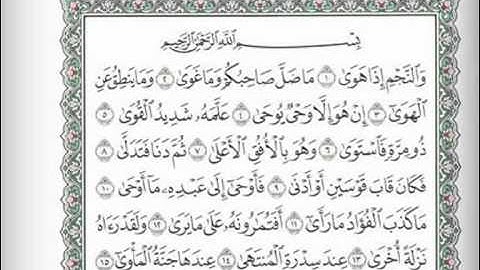 بِسْمِ اللَّهِ الرَّحْمَٰنِ الرَّحِيمِ
وَالنَّجْمِ إِذَا هَوَىٰ ١ مَا ضَلَّ صَاحِبُكُمْ وَمَا غَوَىٰ ٢ وَمَا يَنطِقُ عَنِ
الْهَوَىٰ ٣ إِنْ هُوَ إِلَّا وَحْيٌ يُوحَىٰ ٤ عَلَّمَهُۥ شَدِيدُ الْقُوَىٰ ٥
ذُو مِرَّةٍ فَاسْتَوَىٰ ٦ وَهُوَ بِالْأُفُقِ الْأَعْلَىٰ ٧ ثُمَّ دَنَا فَتَدَلَّىٰ ٨
فَكَانَ قَابَ قَوْسَيْنِ أَوْ أَدْنَىٰ ٩ فَأَوْحَىٰ إِلَىٰ عَبْدِهِۦ مَا أَوْحَىٰ ١٠
مَا كَذَبَ الْفُؤَادُ مَا رَأَىٰ ١١ أَفَتُمَارُونَهُۥ عَلَىٰ مَا يَرَىٰ ١٢ وَلَقَدْ رَءَاهُ
نَزْلَةً أُخْرَىٰ ١٣ عِندَ سِدْرَةِ الْمُنتَهَىٰ ١٤ عِندَهَا جَنَّةُ الْمَأْوَىٰ ١٥